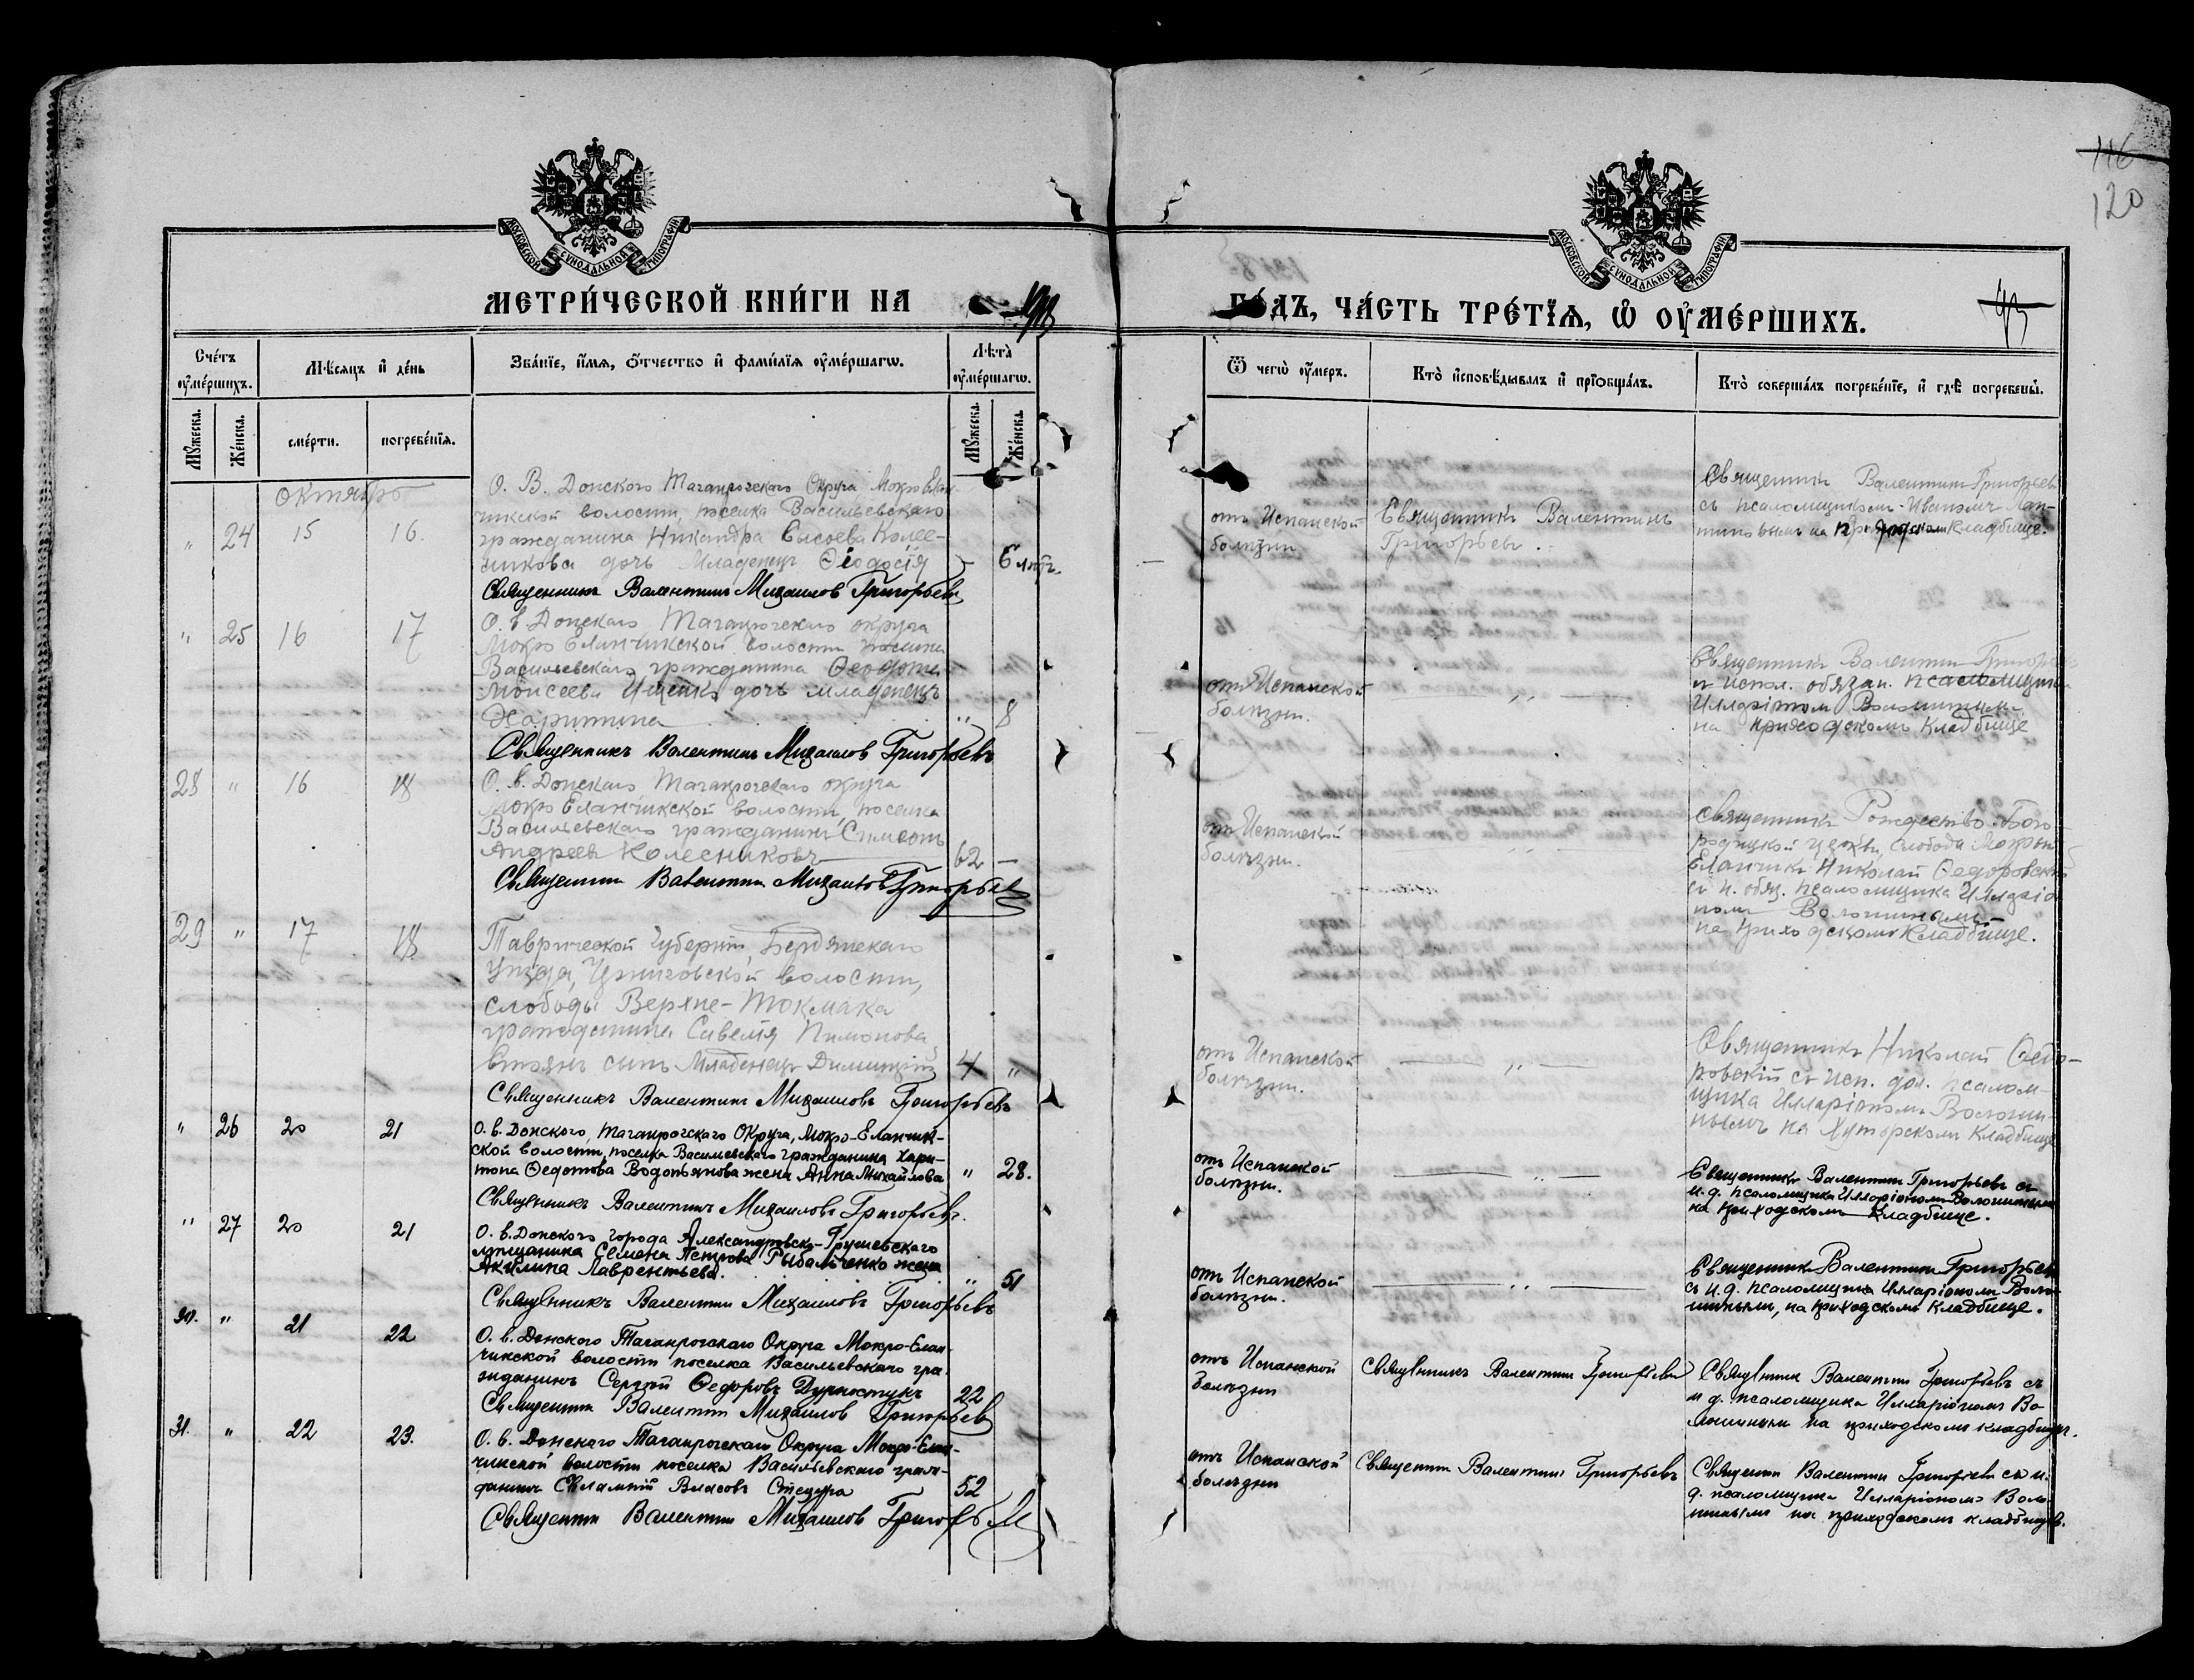 116
120
МОСКОВСКОЙ СѴНОДАЛЬНОЙ ТИПОГРАФІИ
МОСКОВСКОЙ СѴНОДАЛЬНОЙ ТИПОГРАФІИ
МЕТРИ́ЧЕСКОЙ КНИ́ГИ НА 1918
ГО́ДЪ, ЧА́СТЬ ТРЕ́ТЇѦ, Ѽ ОУ҆МЕ́РШИХЪ.
Сче́тъ оу҆ме́ршихъ.
Мѣ́сяцъ и҆ де́нь
Зва́нїе, и҆́мѧ, ѻ҆́тчество и҆ фами́лїѧ оу҆ме́ршагѡ.
Лѣта̀ оу҆ме́ршагѡ.
Ѿ чегѡ̀ оу҆́меръ.
Кто̀ и҆сповѣ́дывалъ и҆ прїѡбща́лъ.
Кто̀ соверша́лъ погребе́нїе, и҆ гдѣ̀ погребены̀.
Мꙋ́жеска.
Же́нска.
сме́рти.
погребе́нїѧ.
Мꙋ́жеска.
Же́нска.
октябрь
" 24 15 16.
О. В. Донского Таганрогскаго Округа, Мокро Елан-
чикской волости, поселка Васильевскаго
гражданина Никандра Сысоева Колес-
никова дочь Младенецъ Ѳеодосія
6 лѣт.
Священникъ Валентинъ Михаилов Григорьевъ
отъ Испанской
болѣзни
Священникъ Валентинъ
Григорьевъ.
Священникъ Валентинъ Григорьев
съ псаломщикомъ Иваномъ
на приходскомъ кладбище.
" 25 16 17
О. в. Донскаго Таганрогскаго округа
Мокро Еланчикской волости поселка
Васильевскаго гражданина Ѳеодота
Моисеева Ищенко дочь младенецъ
Харитина " 8
Священникъ Валентинъ Михаилов Григорьевъ
отъ Испанской
болѣзни.
"
Священникъ Валентин Григорьев
и испол. обязан. псаломщика
Илларіоном Волошиным
на приходскомъ кладбище
28 " 16 18
О. в. Донскаго Таганрогскаго округа
Мокро Еланчикской волости, поселка
Васильевскаго гражданинъ Симеонъ
Андреевъ Колесниковъ 62 —
Священникъ Валентин Михаилов Григорьев
отъ Испанской
болѣзни.
"
Священникъ Рождество-Бого-
родицкой церкви, слободы Мокрый
Еланчикъ Николай Ѳедоровскій
съ и. обяз. псаломщика Илларіо-
номъ Волошинымъ
на приходскомъ кладбище.
29 " 17 18
Таврической губерніи, Бердянскаго
уѣзда, Черниговской волости,
слободы Верхне-Токмака
гражданина Савелія Пимонова
сынъ Младенец Димитрій 4 "
Священникъ Валентинъ Михаиловъ Григорьевъ
отъ Испанской
болѣзни.
"
Священникъ Николай Ѳедо-
ровскій съ исп. дол. псалом-
щика Илларіономъ Волоши-
нымъ на Хуторскомъ кладбище
" 26 20 21
О. в. Донского, Таганрогскаго Округа, Мокро-Еланчик-
ской волости, поселка Васильевскаго гражданина Хари-
тона Ѳедотова Водопьянова жена Анна Михайлова " 28.
Священникъ Валентинъ Михаиловъ Григорьевъ.
отъ Испанской
болѣзни.
"
Священникъ Валентинъ Григорьевъ съ
и.д. псаломщика Илларіономъ Волошинымъ
на приходскомъ кладбище.
" 27 20 21
О. в. Донского города Александровско-Грушевскаго
мѣщанина Семена Петрова Рыбальченко жена
Акилина Лаврентьева. " 51
Священникъ Валентин Михаиловъ Григорьевъ
отъ Испанской
болѣзни.
"
Священникъ Валентинъ Григорьевъ
съ и.д. псаломщика Илларіономъ Воло-
шинымъ, на приходскомъ кладбище.
30. " 21 22
О. в. Донского Таганрогскаго Округа Мокро-Елан-
чикской волости поселка Васильевскаго гра-
жданинъ Сергѣй Ѳедоровъ 22
Священникъ Валентин Михаилов Григорьев
отъ Испанской
болѣзни
Священникъ Валентинъ Григорьевъ
Священникъ Валентинъ Григорьевъ съ
и д. псаломщика Илларіономъ Во-
лошинымъ на приходскомъ кладбищѣ.
31. " 22 23.
О. в. Донского Таганрогскаго Округа Мокро-Елан-
чикской волости поселка Васильевскаго граж-
данинъ Евлампій Власовъ Стецура 52
Священникъ Валентин Михаилов Григорьев
отъ Испанской
болѣзни
Священникъ Валентинъ Григорьевъ
Священникъ Валентинъ Григорьевъ съ и.
д. псаломщика Илларіономъ Воло-
шинымъ на приходскомъ кладбищѣ.